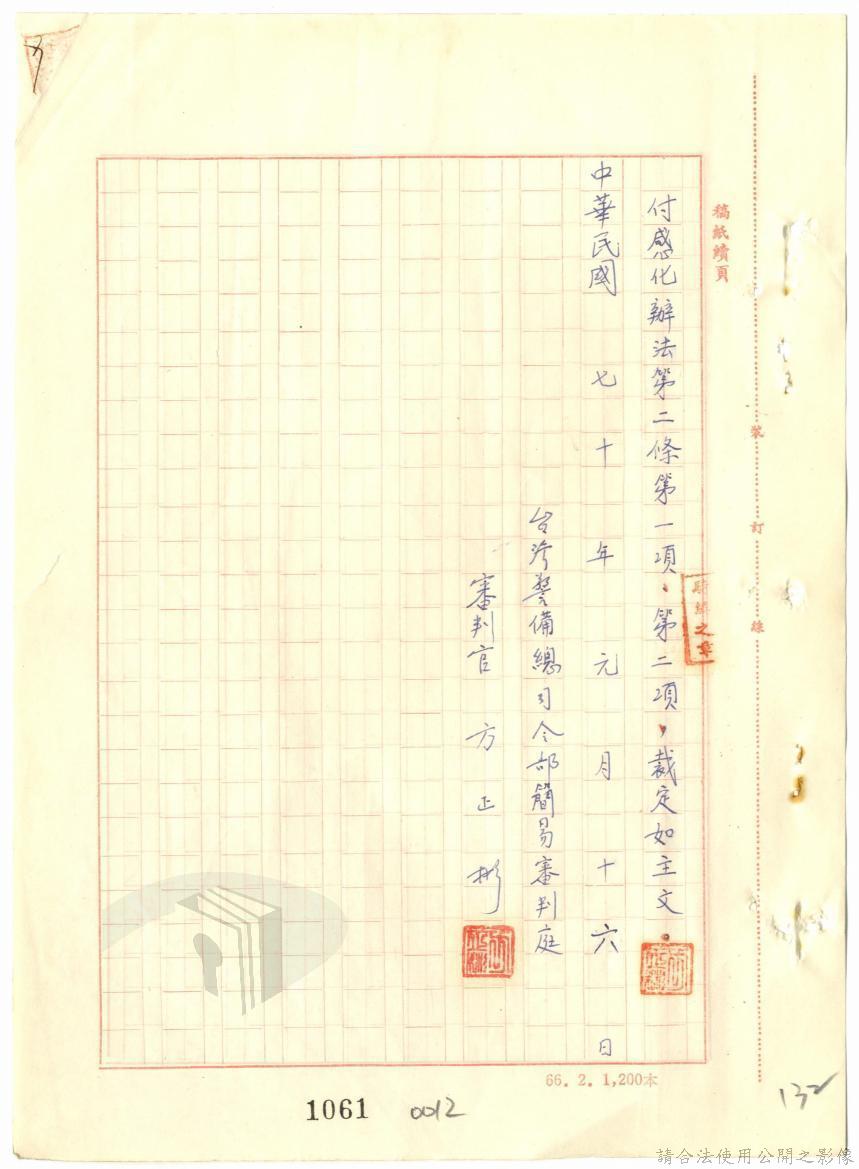 稿紙續頁
裝
訂
線
付感化辦法第二條第一項、第二項,裁定如主文。
騎縫之章
中華民國 七十年元月十六日
台湾警備總司令部簡易審判庭
審判官 方正彬
66. 2. 1,200本
1061
0012
132
請合法使用公開之影像